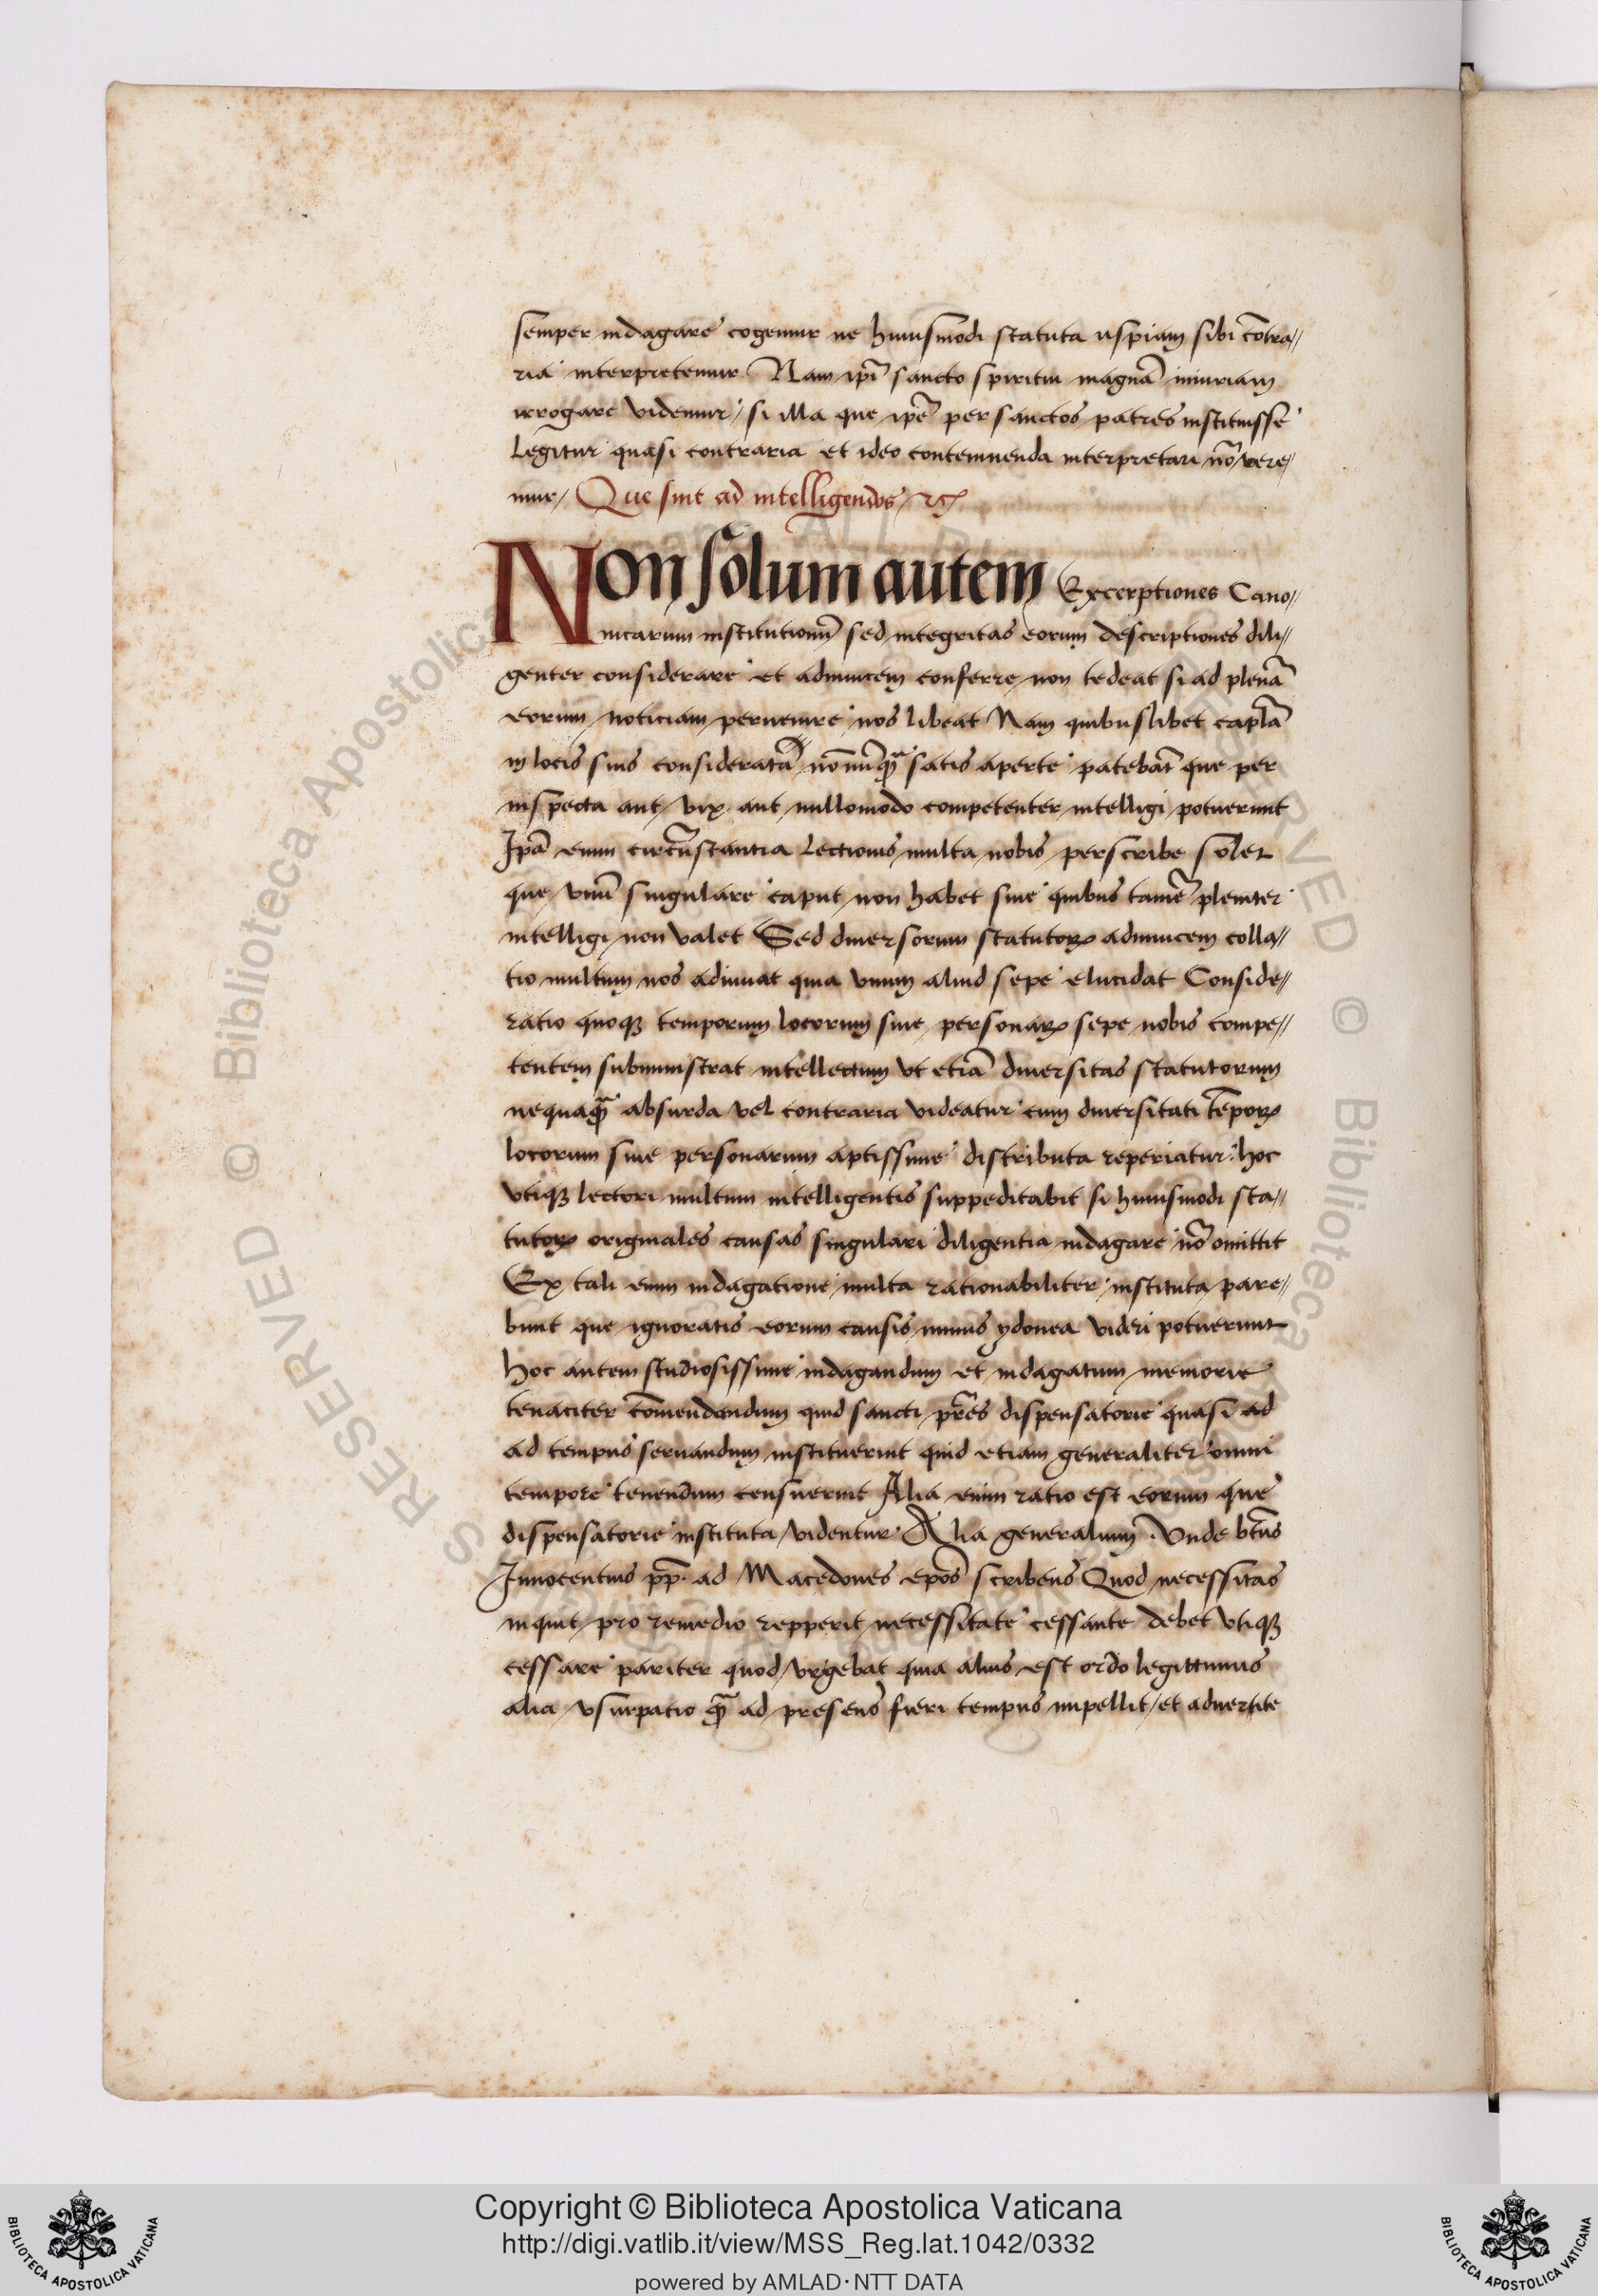 semper indagare cogemur ne huiusmodi statuta uspiam sibi cõtra//
ria interpretemur Nam ip̃i sancto spiritui magnã iniuriam
irrogare videmur / si illa que ip̃e per sanctos patres instituisse
legitur quasi contraria et ideo contemnenda interpretari nõ vere/
mur / Que sint ad intelligendos / rc̃
Non solum autem Excerptiones Cano//
nicarum institutionũ sed integritas eorum descriptiones dili//
genter considerare et adinuicem conferre non tedeat si ad plenã
eorum noticiam peruenire nos libeat Nam quibuslibet capl̃a
in locis suis consideratã nõnũqꝫ̃ satis aperte patebãt que per
inspecta aut vix aut nullomodo competenter intelligi potuerunt
Ip̃a enim circũstantia lectionis multa nobis perscribe solet
que vnũ singulare caput non habet sine quibus tamẽ pleniter
intelligi non valet Sed diuersorum statutoꝝ adinuicem colla//
tio multum nos adiuuat quia vnum aliud sepe elucidat Conside//
ratio quoqꝫ temporum locorum siue personaꝝ sepe nobis compe//
tentem subministrat intellectum vt etiã diuersitas statutorum
nequaqꝫ̃ absurda vel contraria videatur cum diuersitati tẽpoꝝ
locorum siue personarum aptissime distributa reperiatur : hoc
vtiqꝫ lectori multum intelligentis suppeditabit si huiusmodi sta//
tutoꝝ originales causas singulari diligentia indagare nõ omittit
Ex tali enim indagatione multa rationabiliter instituta pare//
bunt que ignoratis eorum causis minus ydonea videri potuerunt
hoc autem studiosissime indagandum et indagatum memorie
tenaciter cõmendandum quid sancti pr̃es dispensatorie quasi ad
ad tempus seruandum instituerint quid etiam generaliter omni
tempore tenendum censuerint Alia enim ratio est eorum que
dispensatorie instituta videntur Alia generaliũ . Vnde bt̃us
Innocentius pp̃. ad Macedones ep̃os scribens Quod necessitas
inquit pro remedio repperit necessitate cessante debet vtiqꝫ
cessare pariter quod vrgebat quia alius est ordo legittimus
alia vsurpatio qꝫ̃ ad presens fieri tempus impellit / et aduertite
Copyright © Biblioteca Apostolica Vaticana
http://digi.vatlib.it/view/MSS_Reg.lat.1042/0332
powered by AMLAD·NTT DATA